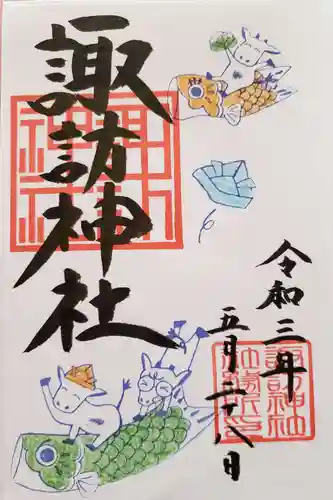 諏訪神社
令和三年
五月二十八日